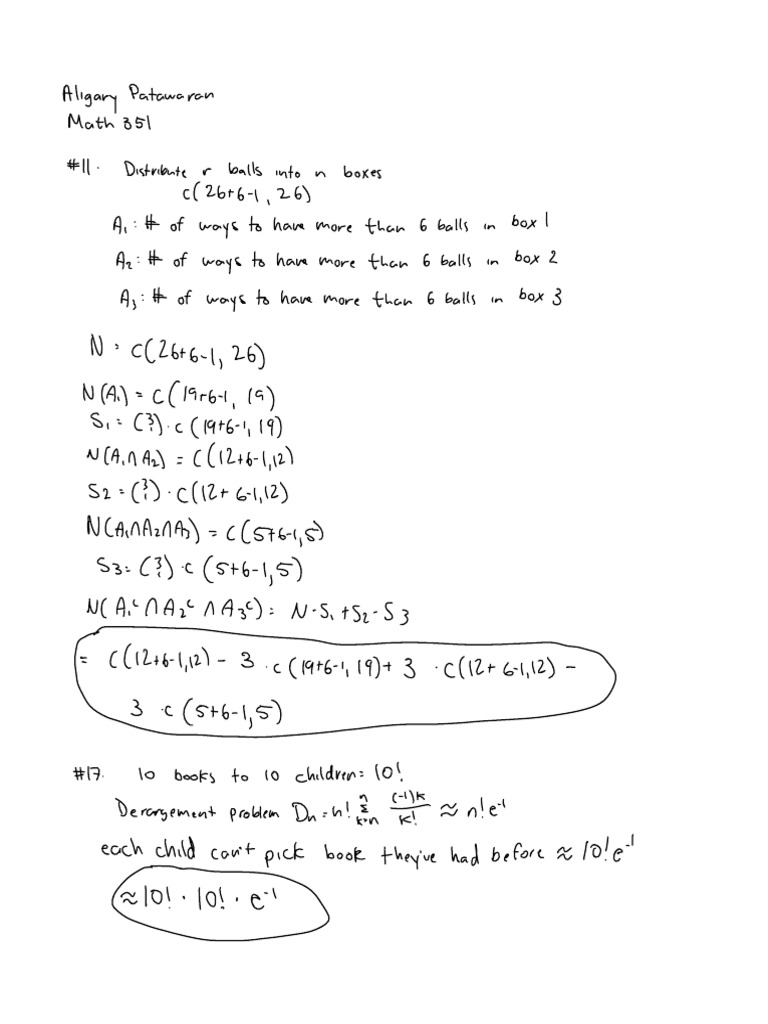 Aligary Patawaran
Math 351
#11. Distribute r balls into n boxes
C(26+6-1, 26)
A₁: # of ways to have more than 6 balls in box 1
A₂: # of ways to have more than 6 balls in box 2
A₃: # of ways to have more than 6 balls in box 3
N = C(26+6-1, 26)
N(A₁) = C(19+6-1, 19)
S₁ = (3 1) · C(19+6-1, 19)
N(A₁∩A₂) = C(12+6-1,12)
S₂ = (3 1) · C(12+6-1,12)
N(A₁∩A₂∩A₃) = C(5+6-1,5)
S₃ = (3 1) · C(5+6-1,5)
N(A₁ᶜ ∩ A₂ᶜ ∩ A₃ᶜ) = N-S₁+S₂-S₃
= C(12+6-1,12) - 3 · C(19+6-1, 19) + 3 · C(12+6-1,12) -
3 · C(5+6-1,5)
#17. 10 books to 10 children = 10!
Derargement problem Dn = n! n Σ k=n (-1)k / k! ≈ n!e⁻¹
each child can't pick book they've had before ≈ 10!e⁻¹
≈ 10! · 10! · e⁻¹